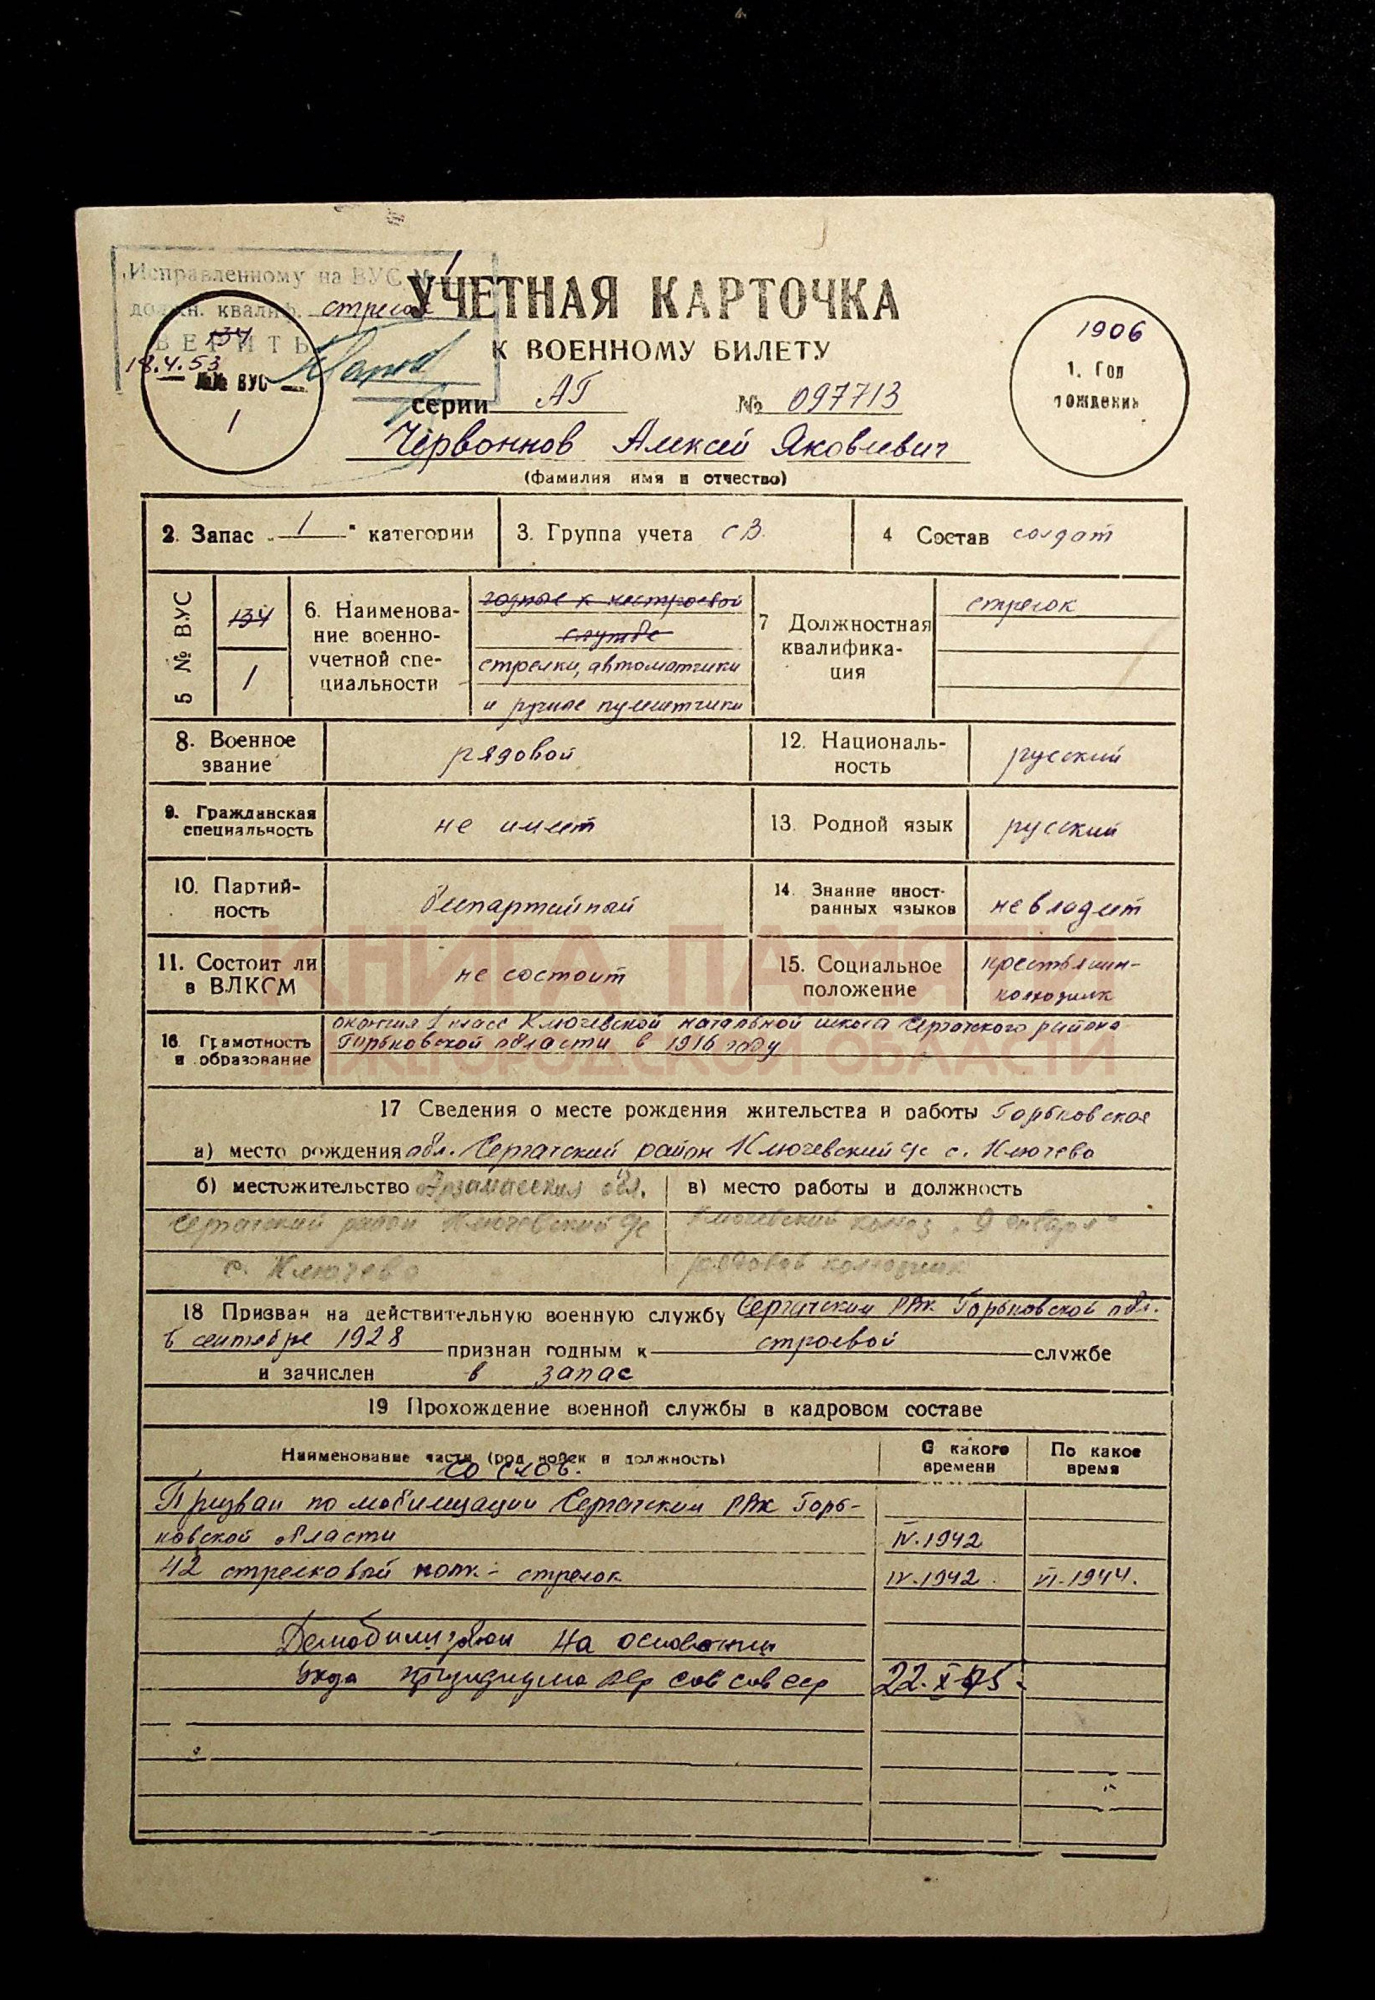 Исправленному на ВУС № 1
должн. квалиф. стрелок
ВЕРИТЬ
18.4.53
134
№№ ВУС
1
УЧЕТНАЯ КАРТОЧКА
К ВОЕННОМУ БИЛЕТУ
серии АГ № 097713
1906
1. Год
рождения
Червоннов Алексей Яковлевич
(фамилия имя и отчество)
2. Запас „1" категории
3. Группа учета СВ
4 Состав солдат
5 № ВУС
134
1
6. Наименова-
ние военно-
учетной спе-
циальности
годные к нестроевой
службе
стрелки, автоматчики
и ручные пулеметчики
7 Должностная
квалифика-
ция
стрелок
8. Военное
звание
рядовой
12. Националь-
ность
русский
9. Гражданская
специальность
не имеет
13. Родной язык
русский
10. Партий-
ность
беспартийный
14. Знание иност-
ранных языков
не владеет
11. Состоит ли
в ВЛКСМ
не состоит
15. Социальное
положение
крестьянин-
колхозник
КНИГА ПАМЯТИ
НИЖЕГОРОДСКОЙ ОБЛАСТИ
16. Грамотность
и образование
окончил 1 класс Ключевской начальной школы Сергачского района
Горьковской области в 1916 году
17 Сведения о месте рождения жительства и работы Горьковская
а) место рождения обл. Сергачский район Ключевский с/с с. Ключево
б) местожительство Арзамасская обл.
Сергачский район Ключевский с/с
с. Ключево
в) место работы и должность
Ключевский колхоз „9 января"
рядовой колхозник
18 Призван на действительную военную службу Сергачским РВК Горьковской обл.
в сентябре 1928 признан годным к строевой службе
и зачислен в запас
19 Прохождение военной службы в кадровом составе
Наименование части (род войск и должность)
С какого
времени
По какое
время
со слов.
Призван по мобилизации Сергачским РВК Горь-
ковской области IV.1942
42 стрелковый полк - стрелок IV.1942. VI.1944.
Демобилизован на основании
Указа президиума вер сов СССР 22.X-45